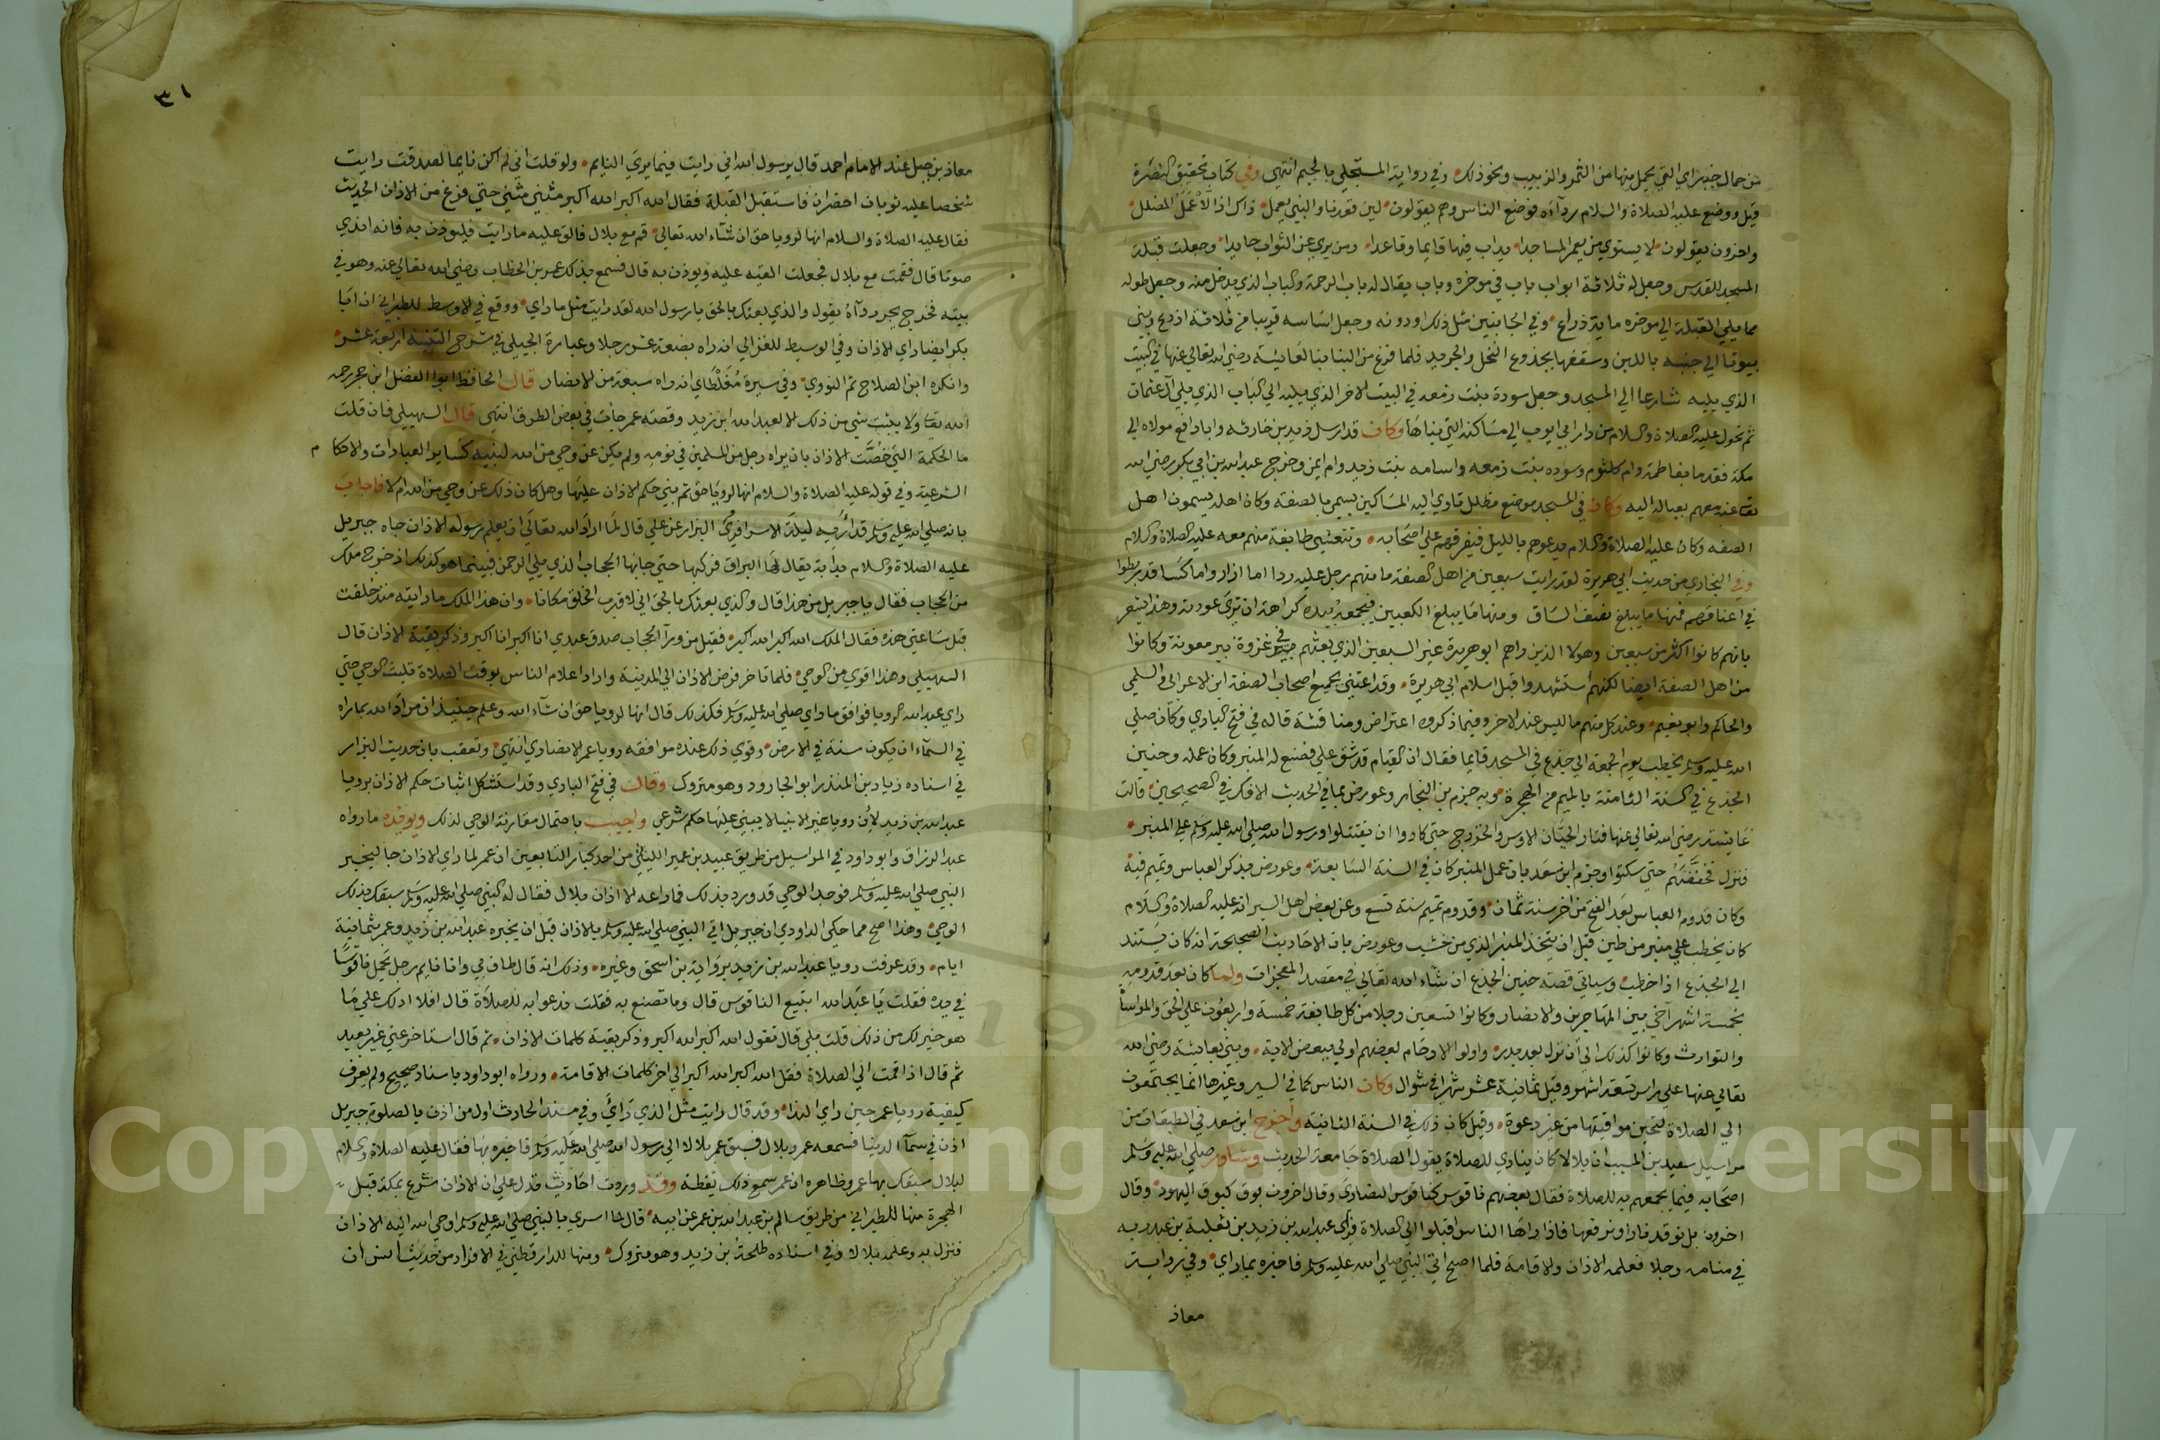 من حمال خيبر اي التي يحمل منها من الثمر والزبيب ونحو ذلك وفي رواية المستملي بالجيم انتهى وفي كتاب تحقيق النصرة
قيل ووضع عليه الصلاة والسلام رداءه فوضع الناس وهم يقولون لين قعدنا والنبي يعمل ذاك اذا لعمل المضلل
واخرون يقولون لا يستوي من يعمر المساجدا يداب فيها قايما وقاعدا ومن يري عن التراب حايدا وجعلت قبلة
المسجد للقدس وجعل له ثلاثة ابواب باب في موخره وباب يقال له باب الرحمة والباب الذي يدخل منه وجعل طوله
مما يلي القبلة الي موخره ماية ذراع وفي الجانبين مثل ذلك او دونه وجعل اساسه قريبا من ثلاثة اذرع وبني
بيوتا الي جنبه باللبن وسقفها بجذوع النخل والجريد فلما فرغ من البنا بنا لعايشة رضي الله تعالي عنها في البيت
الذي يليه شارعا الي المسجد وجعل سودة بنت زمعه في البيت الاخر الذي يليه الي الباب الذي يلي آل عثمان
ثم تحول عليه الصلاة والسلام من دار ابي ايوب الي مساكنه التي بناها وكان قد ارسل زيد بن حارثه وابا رافع مولاه الي
مكة فقدما بفاطمة وام كلثوم وسوده بنت زمعه واسامه بنت زيد وام ايمن وخرج عبد الله بن ابي بكر رضي الله
تعا عنه معهم بعيال ابيه وكان في المسجد موضع مظلل تاوي اليه المساكين يسمي بالصفه وكان اهله يسمون اهل
الصفه وكان عليه الصلاة والسلام يدعوهم بالليل فيفرقهم علي اصحابه وتتعشي طايفة منهم معه عليه الصلاة والسلام
وفي البخاري من حديث ابي هريرة لقد رايت سبعين من اهل الصفة ما منهم رجل عليه ردا اما ازار واما كسا قد ربطوا
في اعناقهم فمنها ما يبلغ نصف الساق ومنها ما يبلغ الكعبين فيجمعه بيده كراهة ان تري عورته وهذا يشعر
بانهم كانوا اكثر من سبعين وهولا الذين راهم ابو هريرة غير السبعين الذي بعثهم في غزوة بير معونة وكانوا
من اهل الصفة ايضا لكنهم استشهدوا قبل اسلام ابي هريرة وقد اعتني بجميع اصحاب الصفة ابن الاعرابي والسلمي
والحاكم وابو نعيم وعند كل منهم ما ليس عند الاخر وفيما ذكروه اعتراض ومناقشة قاله في فتح الباري وكان صلي
الله عليه وسلم يخطب يوم الجمعة الي جذع في المسجد قايما فقال ان القيام قد شق علي فصنع له المنبر وكان عمله وحنين
الجذع في السنة الثامنة بالميم من الهجرة وبه جزم بن النجار وعورض بما في الحديث الافك في الصحيحين قالت
عايشة رضي الله تعالي عنها فثار الحيان الاوس والخزرج حتي كادوا ان يقتتلوا ورسول الله صلي الله عليه وسلم علي المنبر
فنزل فخفضهم حتي سكتوا وجزم ابن سعد بان عمل المنبر كان في السنة السابعة وعورض بذكر العباس وتميم فيه
وكان قدوم العباس بعد الفتح من اخر سنة ثمان وقدوم تميم سنة تسع وعن بعض اهل السير انه عليه الصلاة والسلام
كان يخطب علي منبر من طين قبل ان يتخذ المنبر الذي من خشب وعورض بان الاحاديث الصحيحة انه كان يستند
الي الجذع اذا خطب وسياتي قصة حنين الجذع ان شاء الله تعالي في مقصد المعجزات ولما كان بعد قدومه
بخمسة اشهر آخي بين المهاجرين والانصار وكانوا تسعين رجلا من كل طايفة خمسة واربعون علي الحق والمواساة
والتوارث وكانوا كذلك الي ان نزل بعد بدر واولوا الارحام بعضهم اولي ببعض الاية وبني بعايشة رضي الله
تعالي عنها علي راس تسعة اشهر وقيل ثمانية عشر شهرا في شوال وكان الناس كما في السير وغيرها انما يجتمعون
الي الصلاة لتحين مواقيتها من غير دعوة وقيل كان ذلك في السنة الثانية واخرج ابن سعد في الطبقات من
مراسيل سعيد بن المسيب ان بلالا كان ينادي للصلاة بقول الصلاة جامعة الحديث وشاور صلي الله عليه وسلم
اصحابه فيما يجمعهم به للصلاة فقال بعضهم ناقوس كناقوس النصارى وقال اخرون بوق كبوق اليهود وقال
اخرون بل نوقد نارا ونرفعها فاذا راها الناس اقبلوا الي الصلاة فراى عبد الله بن زيد بن ثعلبة بن عبد ربه
في منامه رجلا فعلمه الاذان والاقامة فلما اصبح اتي النبي صلي الله عليه وسلم فاخبره بما راي وفي رواية
معاذ
٣١
معاذ بن جبل عند الامام احمد قال يرسول الله اني رايت فيما يرى النايم ولو قلت اني لم اكن نايما لصدقت رايت
شخصا عليه ثوبان اخضران فاستقبل القبلة فقال الله اكبر الله اكبر مثني مثني حتي فرغ من الاذان الحديث
فقال عليه الصلاة والسلام انها لرويا حق ان شاء الله تعالي قم مع بلال فالق عليه ما رايت فليوذن به فانه اندي
صوتا قال فقمت مع بلال فجعلت القيه عليه ويوذن به قال فسمع بذلك عمر بن الخطاب رضي الله تعالي عنه وهو في
بيته فخرج يجر رداءه يقول والذي بعثك بالحق يا رسول الله لقد رايت مثل ما راي ووقع في الاوسط للطبراني ان ابا
بكر ايضا راي الاذان وفي الوسيط للغزالي انه راه بضعة عشر رجلا وعبارة الجيلي في شرح التنبيه اربعة عشر
وانكره ابن الصلاح ثم النووي وفي سيرة مغلطاي انه راه سبعة من الانصار قال الحافظ ابو الفضل ابن حجر رحمه
الله تعا ولا يثبت شي من ذلك الا لعبد الله ابن زيد وقصة عمر جات في بعض الطرق انتهى قال السهيلي فان قلت
ما الحكمة التي خصت الاذان بان يراه رجل من المسلمين في نومه ولم يكن عن وحي من الله لنبيه كساير العبادات والاحكام
الشرعية وفي قوله عليه الصلاة والسلام انها لرويا حق ثم بني حكم الاذان عليها وهل كان ذلك عن وحي من الله ام لا فاجاب
بانه صلي الله عليه وسلم قد اريه ليلة الاسرا فروى البزار عن علي قال لما اراد الله تعالي ان يعلم رسوله الاذان جاه جبريل
عليه الصلاة والسلام بدابة يقال لها البراق فركبها حتي جابها الحجاب الذي يلي الرحمن فبينما هو كذلك اذ خرج ملك
من الحجاب فقال يا جبريل من هذا قال والذي بعثك بالحق اني لاقرب الخلق مكانا وان هذا الملك ما رايته منذ خلقت
قبل ساعتي هذه فقال الملك الله اكبر الله اكبر فقيل من ورآ الحجاب صدق عبدي انا اكبر انا اكبر وذكر بقية الاذان قال
السهيلي وهذا اقوي من الوحي فلما تاخر فرض الاذان الي المدينة واراد اعلام الناس بوقت الصلاة فلبث الوحي حتي
راي عبد الله الرويا فوافق ما راي صلي الله عليه وسلم فكذلك قال انها لرويا حق ان شآء الله وعلم حينيذ ان مراد الله بما راه
في السمآء ان يكون سنة في الارض وقوي ذلك عنده موافقه رويا عمر الانصاري انتهى وتعقب بان حديث البزار
في اسناده زياد بن المنذر ابو الجارود وهو متروك وقال في فتح الباري وقد استشكل اثبات حكم الاذان برويا
عبد الله بن زيد لان رويا غير الانبيا لا يبني عليها حكم شرعي واجيب باحتمال مقارنة الوحي لذلك ويويده ما رواه
عبد الرزاق وابو داود في المراسيل من طريق عبيد بن عمير الليثي من احد كبار التابعين ان عمر لما راي الاذان جا ليخبر
النبي صلي الله عليه وسلم فوجد الوحي قد ورد بذلك فما راعه الا اذان بلال فقال له النبي صلي الله عليه وسلم سبقك بذلك
الوحي وهذا اصح مما حكى الداودي ان جبريل اتي النبي صلي الله عليه وسلم بالاذان قبل ان يخبره عبد الله بن زيد وعمر بثمانية
ايام وقد عرفت رويا عبد الله بن زيد برواية بن اسحق وغيره وذلك انه قال طاف بي وانا نايم رجل يحمل ناقوسا
في يده فقلت يا عبد الله اتبيع الناقوس قال وما تصنع به فقلت ندعوا به للصلاة قال افلا ادلك علي ما
هو خير لك من ذلك قلت بلي قال تقول الله اكبر الله اكبر وذكر بقية كلمات الاذان ثم قال استاخر عني غير بعيد
ثم قال اذا قمت الي الصلاة فقل الله اكبر الله اكبر الي اخر كلمات الاقامة ورواه ابو داود باسناد صحيح ولم يعرف
كيفية رويا عمر حين راي الندا وقد قال رايت مثل الذي راي وفي مسند الحارث اول من اذن بالصلوة جبريل
اذن في سمآ الدنيا فسمعه عمر وبلال فسبق عمر بلالا الي رسول الله صلي الله عليه وسلم فاخبره بها فقال عليه الصلاة والسلام
لبلال سبقك بها عمر وظاهره ان عمر سمع ذلك يقظة وقد وردت احاديث تدل علي ان الاذان شرع بمكة قبل
الهجرة منها للطبراني من طريق سالم بن عبد الله بن عمر عن ابيه قال لما اسري بالنبي صلي الله عليه وسلم اوحي الله اليه الاذان
فنزل به وعلمه بلالا وفي اسناده طلحة بن زيد وهو متروك ومنها للدار قطني في الافراد من حديث انس ان
Copyright © King Saud University